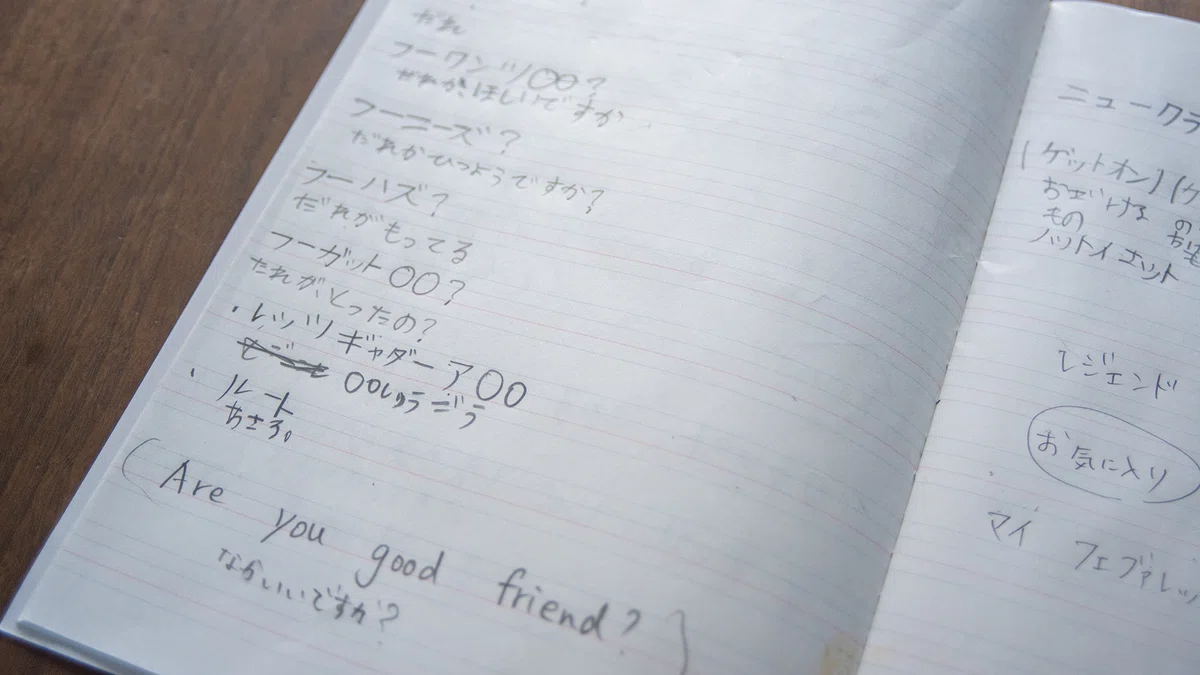 だれ
フーワンツ〇〇?
だれがほしいですか
フーニーズ?
だれがひつようですか?
フーハズ?
だれがもってる
フーガット〇〇?
だれがとったの?
・レッツギャダーア〇〇
〇〇しゅうごう
・ルート
あさる。
(Are you good friend?)
なかいいですか?
ニュークラ
(ゲットオン)(ゲ
もの
ハットイエット
レジェンド
お気に入り
マイ フェブァレッ